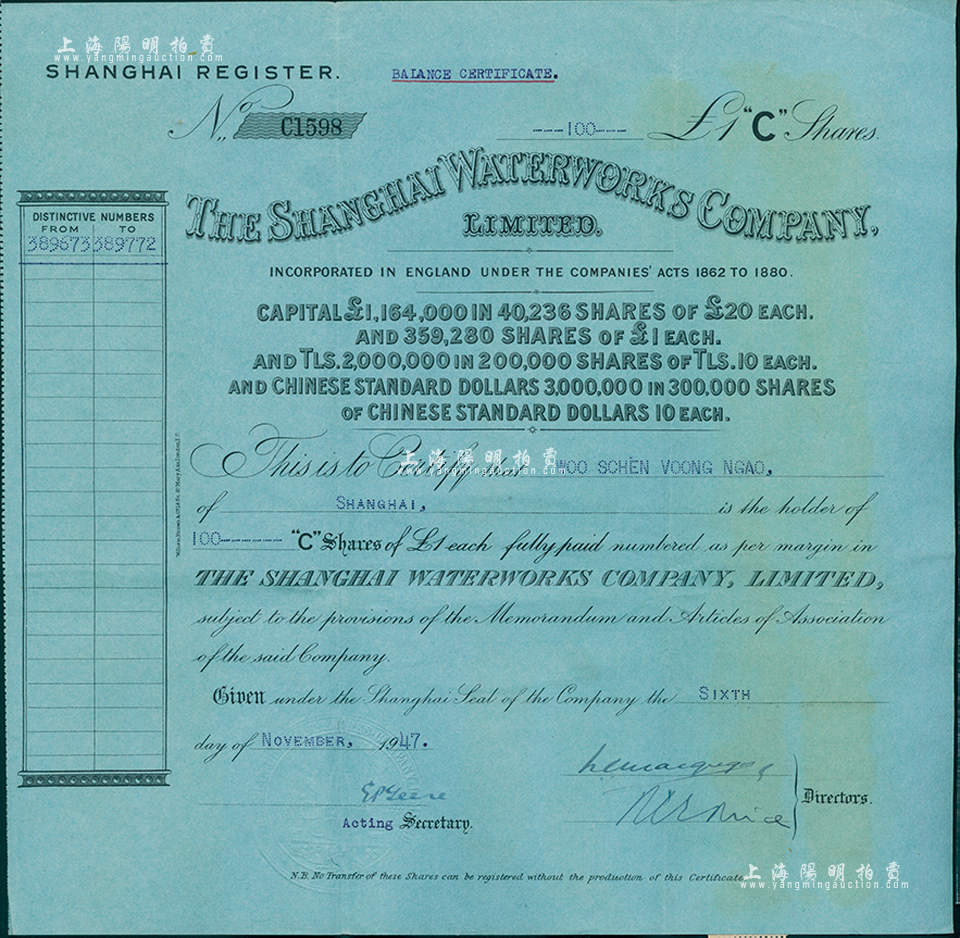 上海陽明拍賣
www.yangmingauction.com
SHANGHAI REGISTER.
BALANCE CERTIFICATE.
No. C1598
---100---- £1 "C" Shares.
THE SHANGHAI WATERWORKS COMPANY,
LIMITED.
INCORPORATED IN ENGLAND UNDER THE COMPANIES' ACTS 1862 TO 1880.
CAPITAL £1,164,000 IN 40,236 SHARES OF £20 EACH.
AND 359,280 SHARES OF £1 EACH.
AND TLS. 2,000,000 IN 200,000 SHARES OF TLS. 10 EACH.
AND CHINESE STANDARD DOLLARS 3,000,000 IN 300.000 SHARES
OF CHINESE STANDARD DOLLARS 10 EACH.
DISTINCTIVE NUMBERS
FROM TO
389673 389772
上海陽明拍賣
www.yangmingauction.com
This is to Certify that WOO SCHEN VOONG NGAO,
of SHANGHAI, is the holder of
100------- "C" Shares of £1 each fully paid numbered as per margin in
THE SHANGHAI WATERWORKS COMPANY, LIMITED,
subject to the provisions of the Memorandum and Articles of Association
of the said Company.
Given under the Shanghai Seal of the Company the SIXTH
day of NOVEMBER, 1947.
Directors.
Acting Secretary.
N.B. No Transfer of these Shares can be registered without the production of this Certificate.
上海陽明拍賣
www.yangmingauction.com